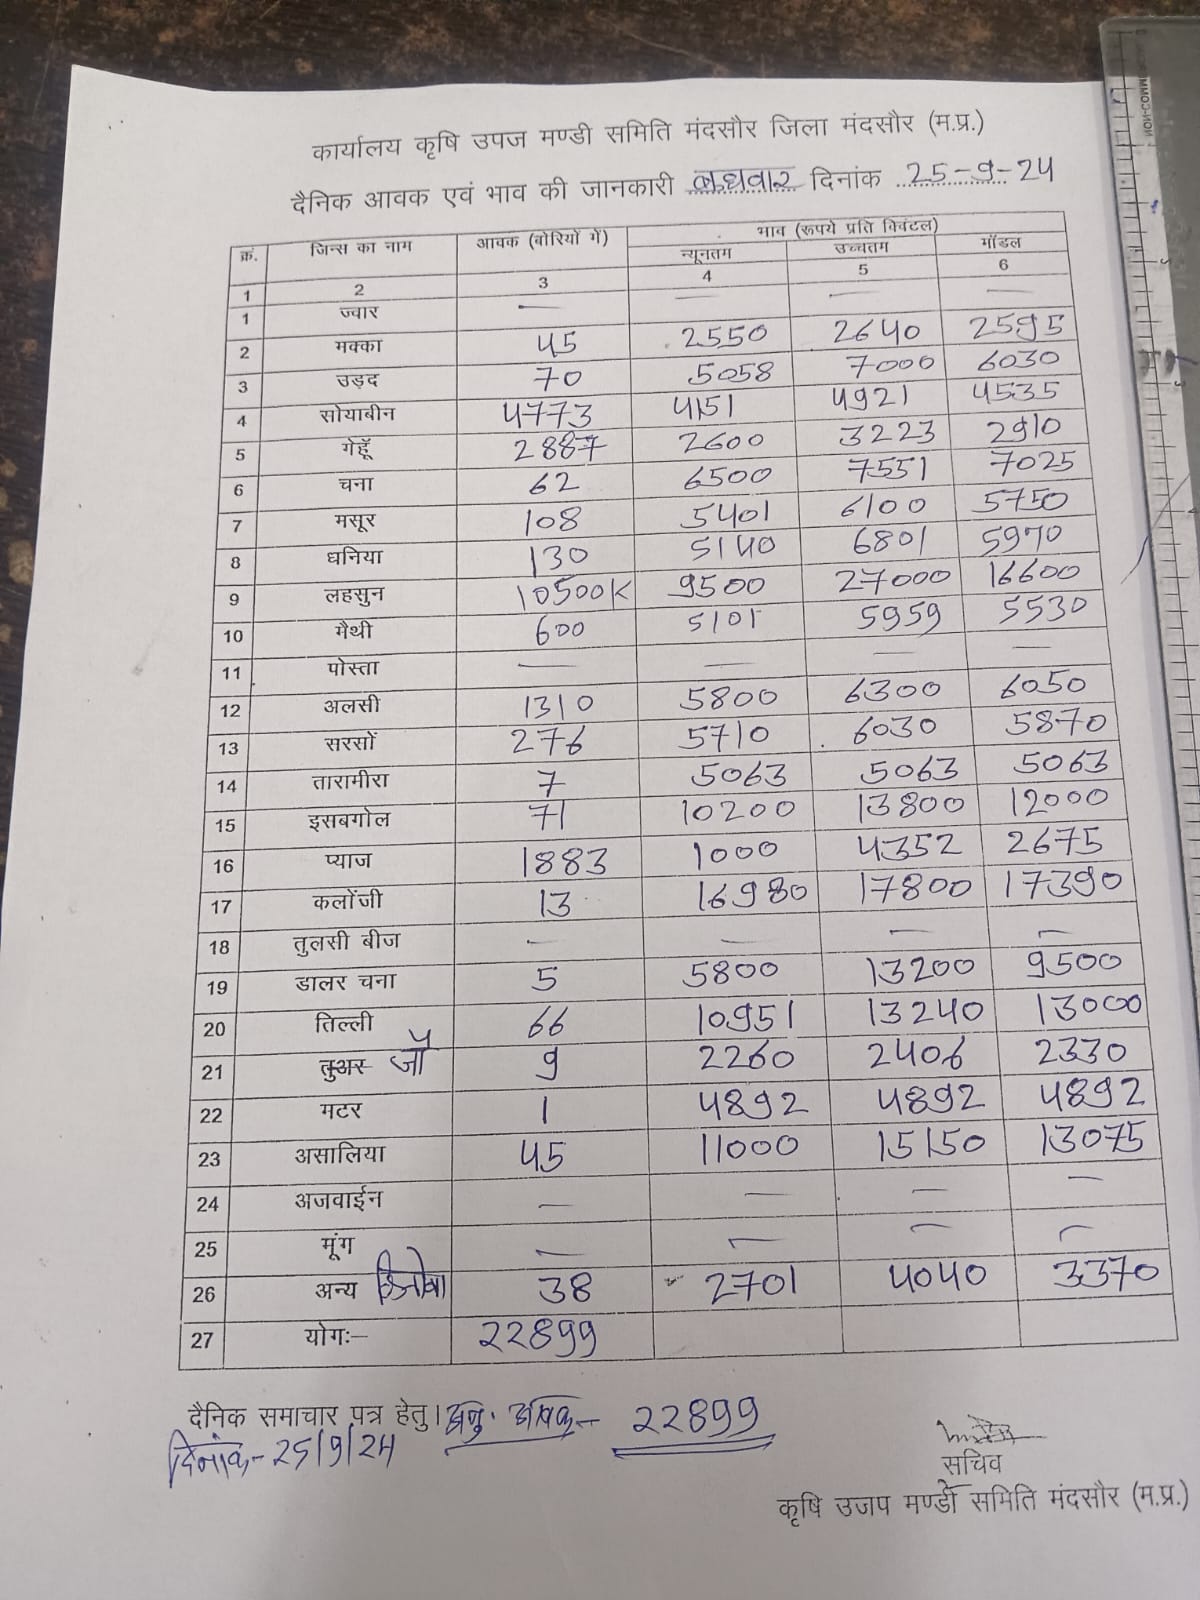 कार्यालय कृषि उपज मण्डी समिति मंदसौर जिला मंदसौर (म.प्र.)
दैनिक आवक एवं भाव की जानकारी बुधवार दिनांक 25-9-24
क्रं. जिन्स का नाम आवक (बोरियों में) भाव (रूपये प्रति क्विंटल)
न्यूनतम उच्चतम मॉडल
1 2 3 4 5 6
1 ज्वार — — — —
2 मक्का 45 2550 2640 2595
3 उड़द 70 5058 7000 6030
4 सोयाबीन 4773 4151 4921 4535
5 गेहूँ 2887 2600 3223 2910
6 चना 62 6500 7551 7025
7 मसूर 108 5401 6100 5750
8 धनिया 130 5140 6801 5970
9 लहसुन 10500K 9500 27000 16600
10 मैथी 600 5101 5959 5530
11 पोस्ता — — — —
12 अलसी 1310 5800 6300 6050
13 सरसों 276 5710 6030 5870
14 तारामीरा 7 5063 5063 5063
15 इसबगोल 71 10200 13800 12000
16 प्याज 1883 1000 4352 2675
17 कलोंजी 13 16980 17800 17390
18 तुलसी बीज — — — —
19 डालर चना 5 5800 13200 9500
20 तिल्ली 66 10951 13240 13000
21 तुअर जौ 9 2260 2406 2330
22 मटर 1 4892 4892 4892
23 असालिया 45 11000 15150 13075
24 अजवाईन — — — —
25 मूंग — — — —
26 अन्य 38 2701 4040 3370
27 योगः— 22899
दैनिक समाचार पत्र हेतु। अनु. आवक- 22899
दिनांक- 25/9/24
सचिव
कृषि उजप मण्डी समिति मंदसौर (म.प्र.)